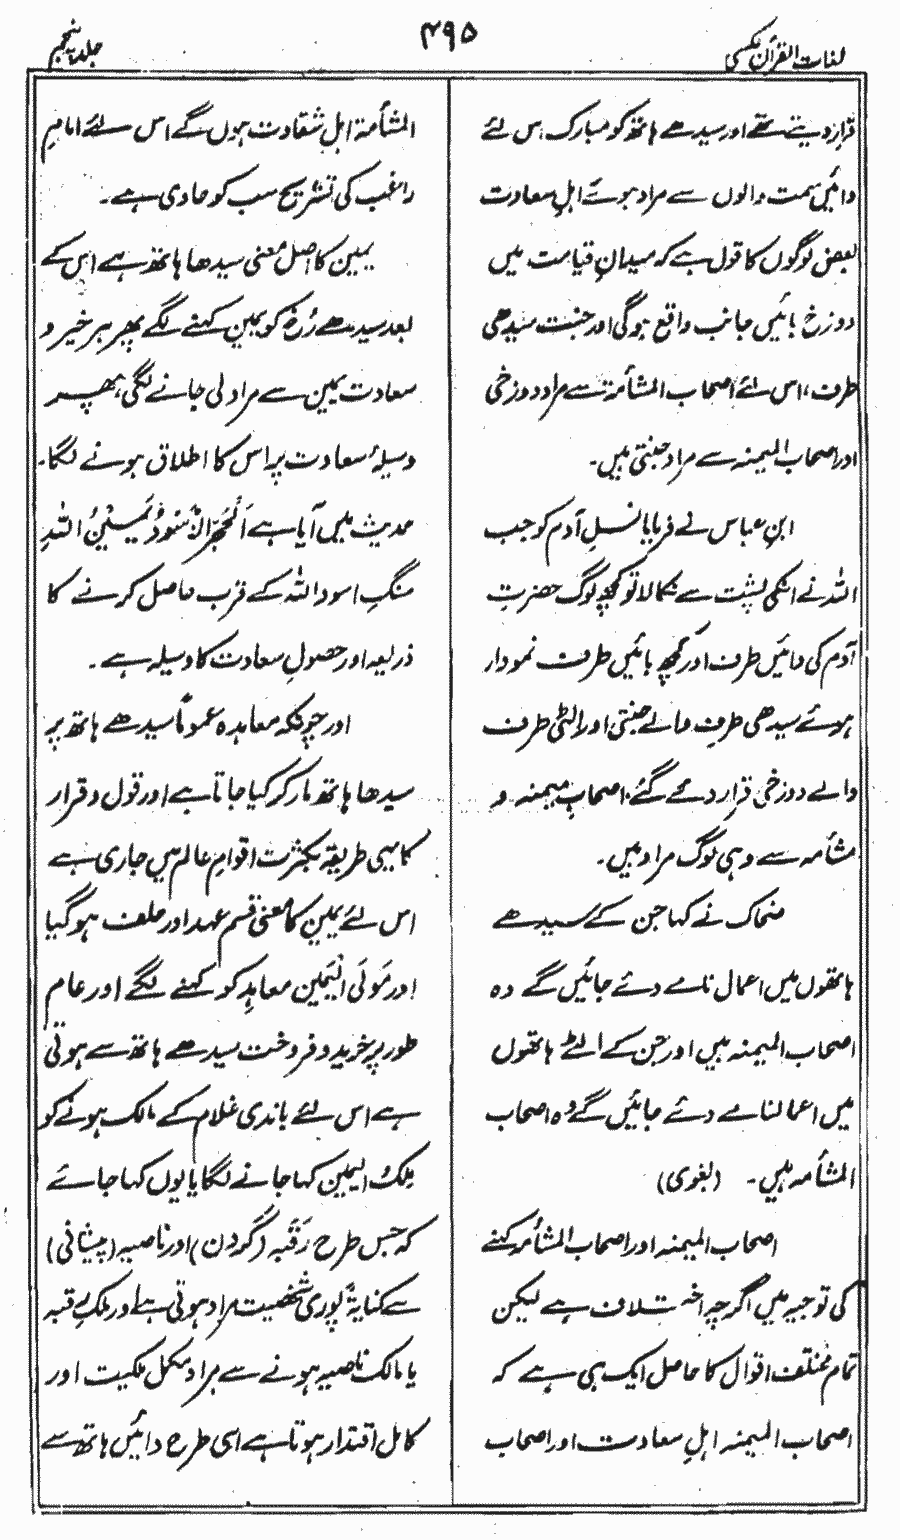 لغات القرآن مکسی
۴۹۵
جلد پنجم
قرار دیتے تھے اور سیدھے ہاتھ کو مبارک، اس لئے
دائیں سمت والوں سے مراد ہوئے اہلِ سعادت
بعض لوگوں کا قول ہے کہ میدانِ قیامت میں
دوزخ بائیں جانب واقع ہوگی اور جنت سیدھی
طرف، اس لئے اصحاب المشأمۃ سے مراد دوزخی
اور اصحاب المیمنہ سے مراد جنتی ہیں۔
ابنِ عباس نے فرمایا نسلِ آدم کو جب
اللہ نے انکی پشت سے نکالا تو کچھ لوگ حضرتِ
آدم کی دائیں طرف اور کچھ بائیں طرف نمودار
ہوئے سیدھی طرف والے جنتی اور الٹی طرف
والے دوزخی قرار دئے گئے، اصحابِ میمنہ و
مشأمہ سے وہی لوگ مراد ہیں۔
ضحاک نے کہا جن کے سیدھے
ہاتھوں میں اعمال نامے دئے جائیں گے وہ
اصحاب المیمنہ ہیں اور جن کے الٹے ہاتھوں
میں اعمالنامے دئے جائیں گے وہ اصحاب
المشأمہ ہیں۔ (بغوی)
اصحاب المیمنہ اور اصحاب المشأمہ کہنے
کی توجیہ میں اگرچہ اختلاف ہے لیکن
تمام مختلف اقوال کا حاصل ایک ہی ہے کہ
اصحاب المیمنہ اہلِ سعادت اور اصحاب
المشأمۃ اہلِ شقاوت ہوں گے اس لئے امامِ
راغب کی تشریح سب کو حاوی ہے۔
یمین کا اصل معنی سیدھا ہاتھ ہے اس کے
بعد سیدھے رُخ کو یمین کہنے لگے پھر ہر خیر و
سعادت یمین سے مراد لی جانے لگی، پھر
وسیلۂ سعادت پر اس کا اطلاق ہونے لگا۔
حدیث میں آیا ہے اَلْحَجَرُ الْاَسْوَدُ یَمِیْنُ اللّٰہِ
سنگِ اسود اللہ کے قرب حاصل کرنے کا
ذریعہ اور حصولِ سعادت کا وسیلہ ہے۔
اور چونکہ معاہدہ عموماً سیدھے ہاتھ پر
سیدھا ہاتھ مار کر کیا جاتا ہے اور قول و قرار
کا یہی طریقہ بکثرت اقوامِ عالم میں جاری ہے
اس لئے یمین کا معنی قسم عہد اور حلف ہوگیا
اور مَوْلَی الْیَمِین معاہد کو کہنے لگے اور عام
طور پر خرید و فروخت سیدھے ہاتھ سے ہوتی
ہے اس لئے باندی غلام کے مالک ہونے کو
مِلکُ الیمین کہا جانے لگا یا یوں کہا جائے
کہ جس طرح رَقَبہ (گردن) اور ناصیہ (پیشانی)
سے کنایۃً پوری شخصیت مراد ہوتی ہے اور ملکِ رقبہ
یا مالک ناصیہ ہونے سے مراد مکمل ملکیت اور
کامل اقتدار ہوتا ہے اسی طرح دائیں ہاتھ سے